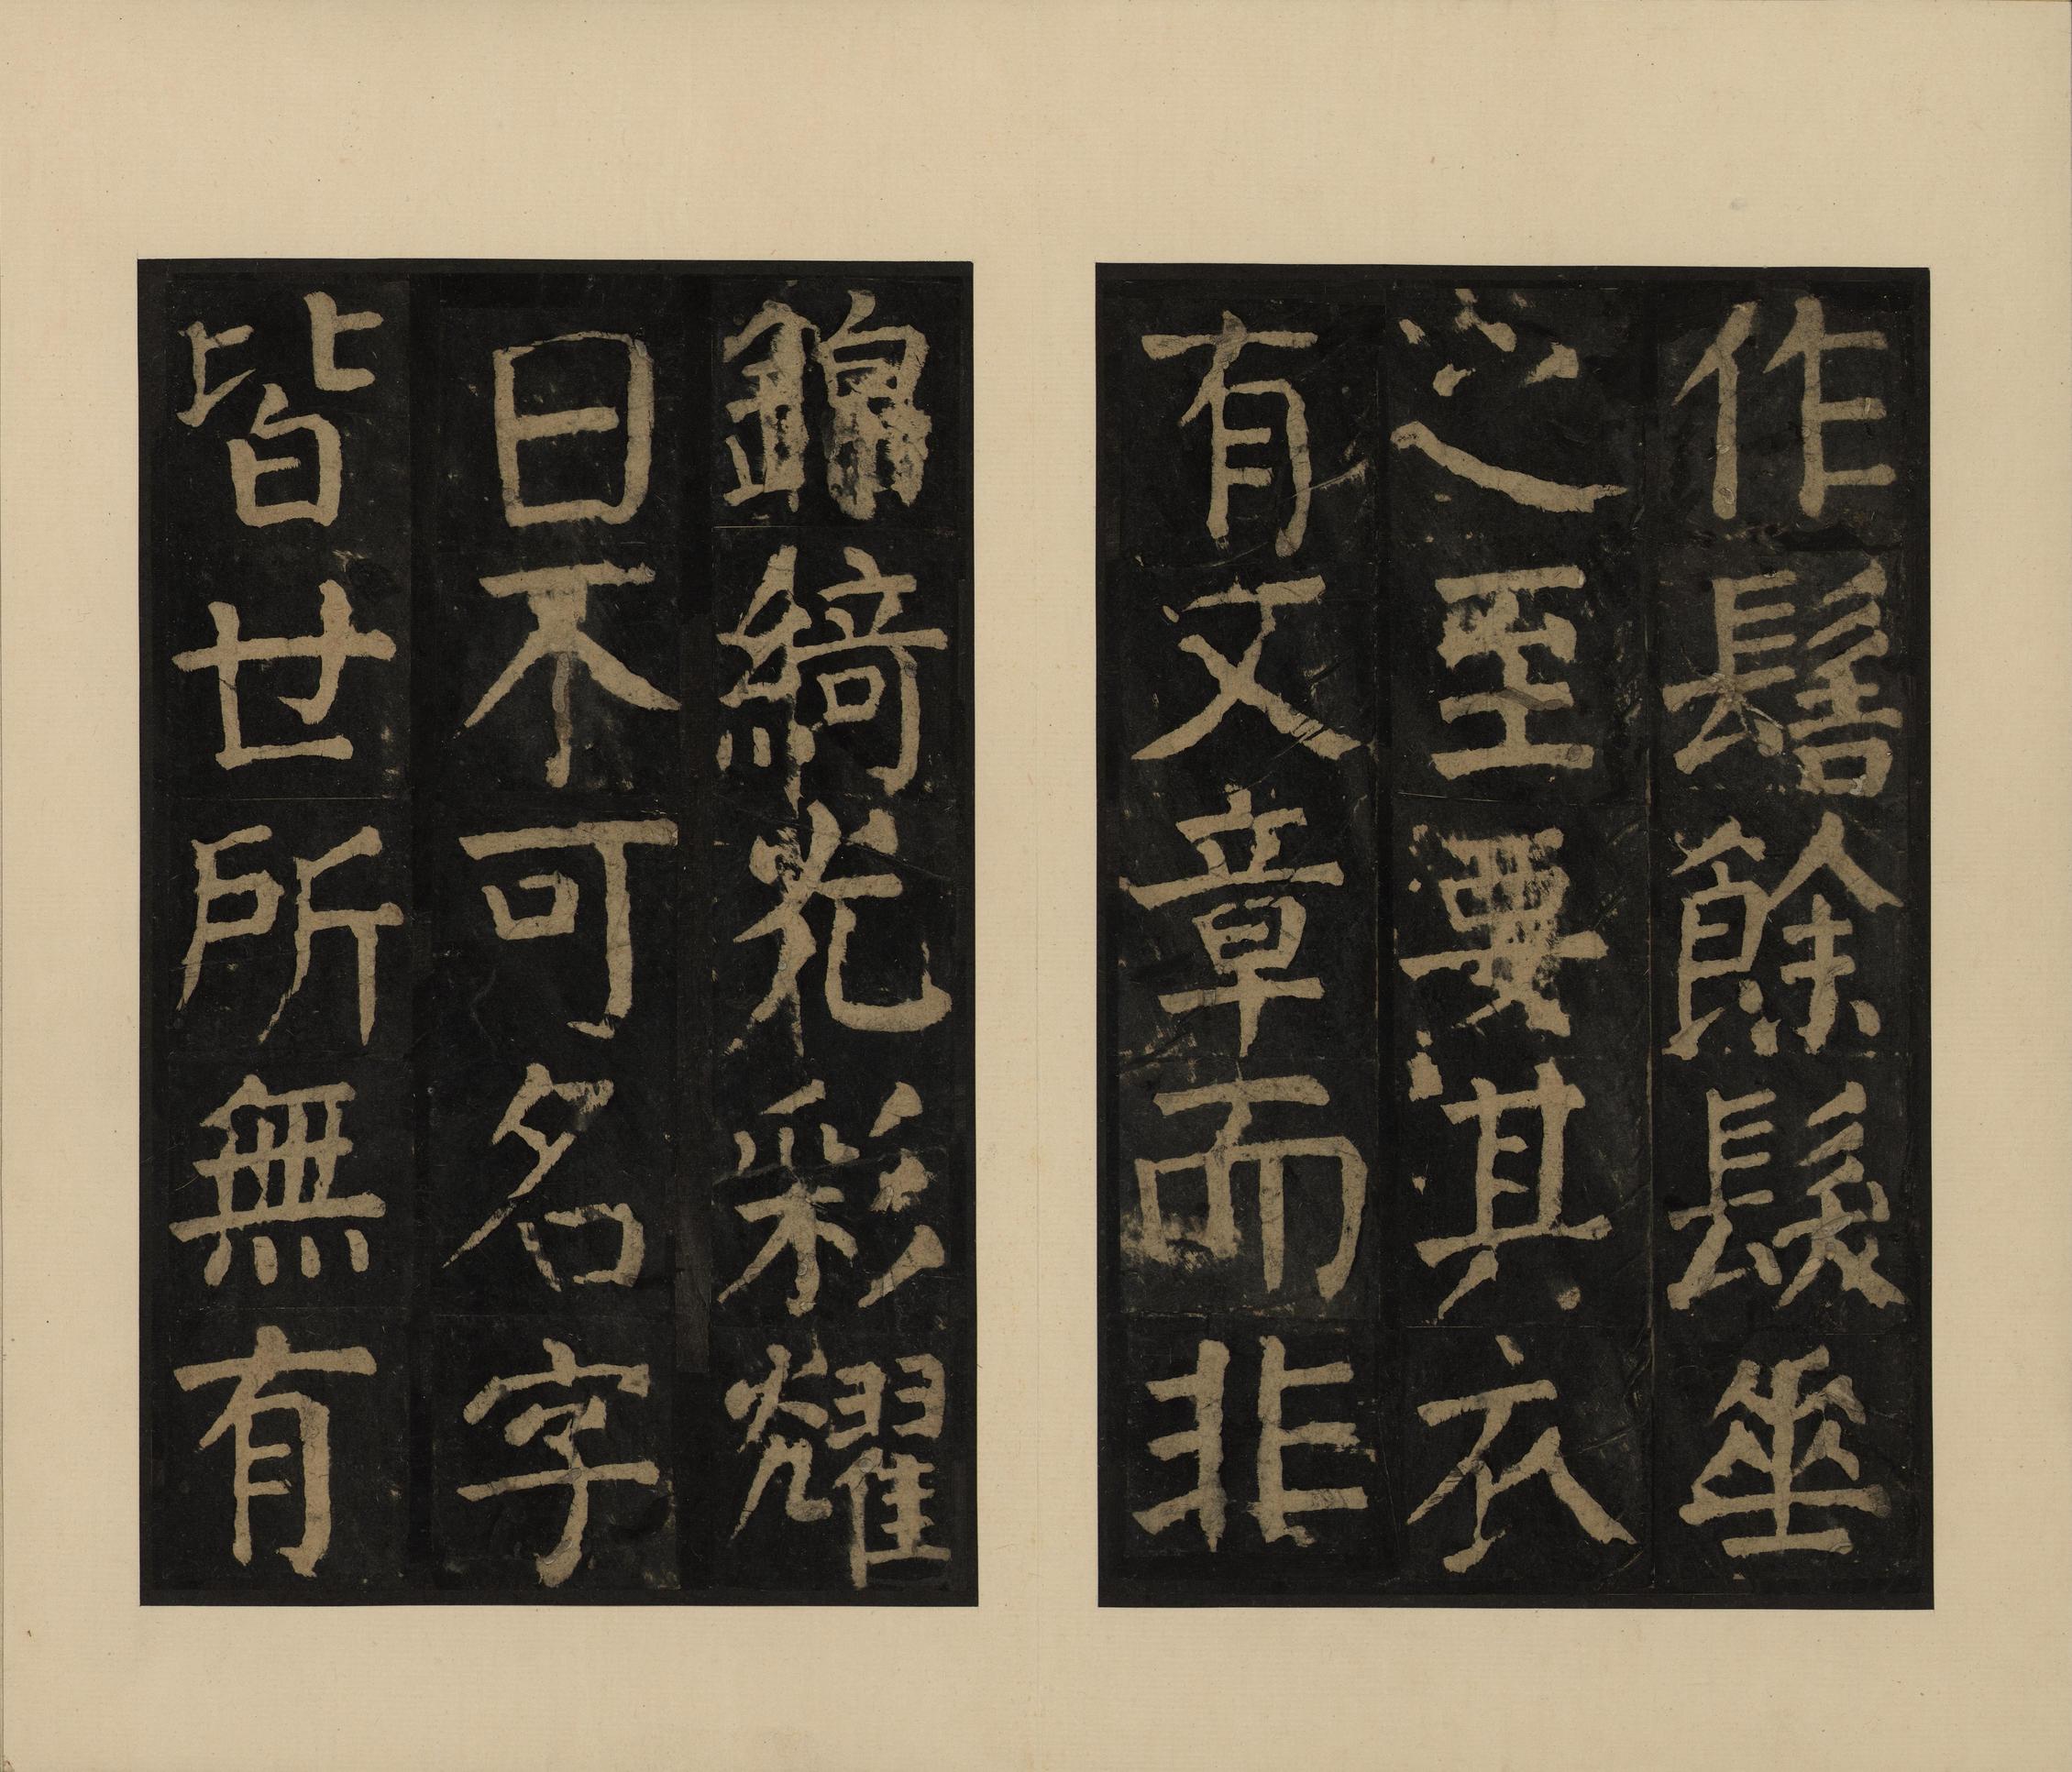 作髻餘髮垂
之至要其衣
有文章而非
錦綺光彩耀
日不可名字
皆廿所無有